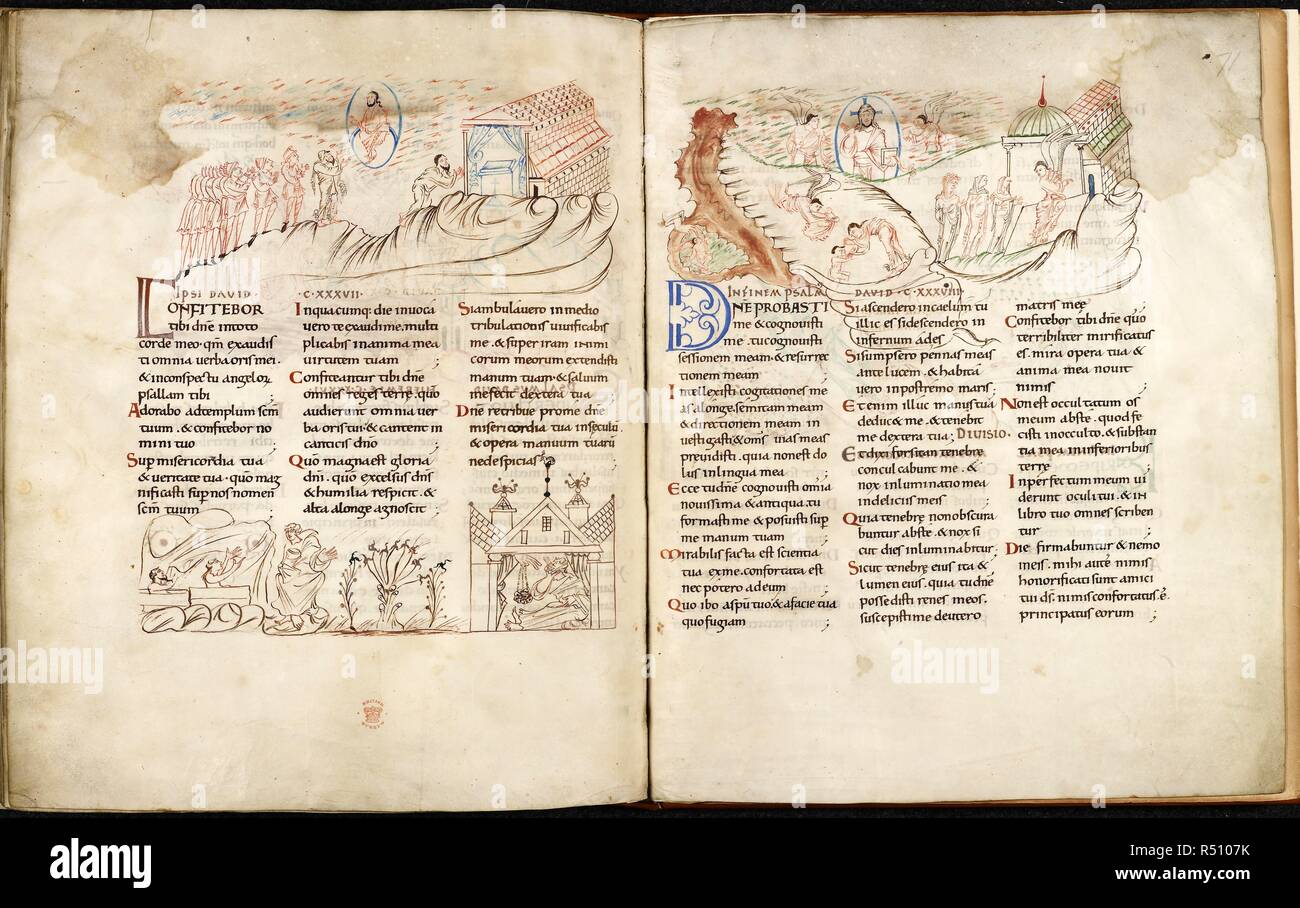 IPSI DAVID · C·XXXVII·
CONFITEBOR
tibi dñe intoto
corde meo· qm̄ exaudis
ti omnia verba oris mei·
& inconspectu angelorꝝ
psallam tibi
Adorabo adtemplum scm̄
tuum· & confitebor no
mini tuo
Sup misericordia tua
& veritate tua· quō mag
nificasti sup nos nomen
scm̄ tuum ;
Inquacumq: die invoca
vero te exaudi me, multi
plicabis inanima mea
virtutem tuam ;
Confiteantur tibi dñe
omnes reges terre· quo
audierunt omnia ver
ba oris tui· & cantent in
canticis dñō ;
Quō magna est gloria
dñi· quō excelsus dñs
& humilia respicit· &
alta alonge agnoscit ;
Si ambulavero in medio
tribulationis vivificabis
me· & super iram inimi
corum meorum extendisti
manum tuam· & salvum
me fecit dextera tua ;
Dñe retribue pro me dñe
misericordia tua insęculū·
& opera manuum tuarū
ne despicias
71
INFINEM PSALM DAVID · C·XXXVIII·
DÑE PROBASTI
me & cognovisti
me· tu cognovisti
sessionem meam· & resurrec
tionem meam
Intellexisti cogitationes me
as alonge, semitam meam
& directionem meam in
vestigasti· & oms̄ vias meas
previdisti· quia non est do
lus in lingua mea ;
Ecce tu dñe cognovisti omnia
novissima & antiqua· tu
formasti me & posuisti sup
me manum tuam ;
Mirabilis facta est scientia
tua ex me· confortata est
nec potero ad eum ;
Quo ibo aspū tuo· & afacie tua
quo fugiam ;
Si ascendero in caelum tu
illic es· si descendero in
infernum ades ;
Si sumpsero pennas meas
ante lucem· & habita
vero in postremo maris ;
Etenim illuc manus tua
deduc& me· & tenebit
me dextera tua ; DIVISIO·
Et dixi forsitan tenebre
conculcabunt me· &
nox inluminatio mea
in deliciis meis ;
Quia tenebrę non obscura
buntur abs te· & nox si
cut dies inluminabitur ;
Sicut tenebre eius ita &
lumen eius, quia tu dñe
possedisti renes meos·
suscepisti me de utero
matris meę ;
Confitebor tibi dñe quō
terribiliter mirificatus
es· mira opera tua &
anima mea novit
nimis ;
Non est occultatum os
meum abs te· quod fe
cisti in occulto· & substan
tia mea in inferioribus
terre ;
Inperfectum meum vi
derunt oculi tui· & in
libro tuo omnes scriben
tur ;
Die firmabuntur & nemo
in eis· mihi autē nimis
honorificati sunt amici
tui ds̄· nimis confortatus ē·
principatus eorum ;
alamy
Image ID: R5107K
www.alamy.com